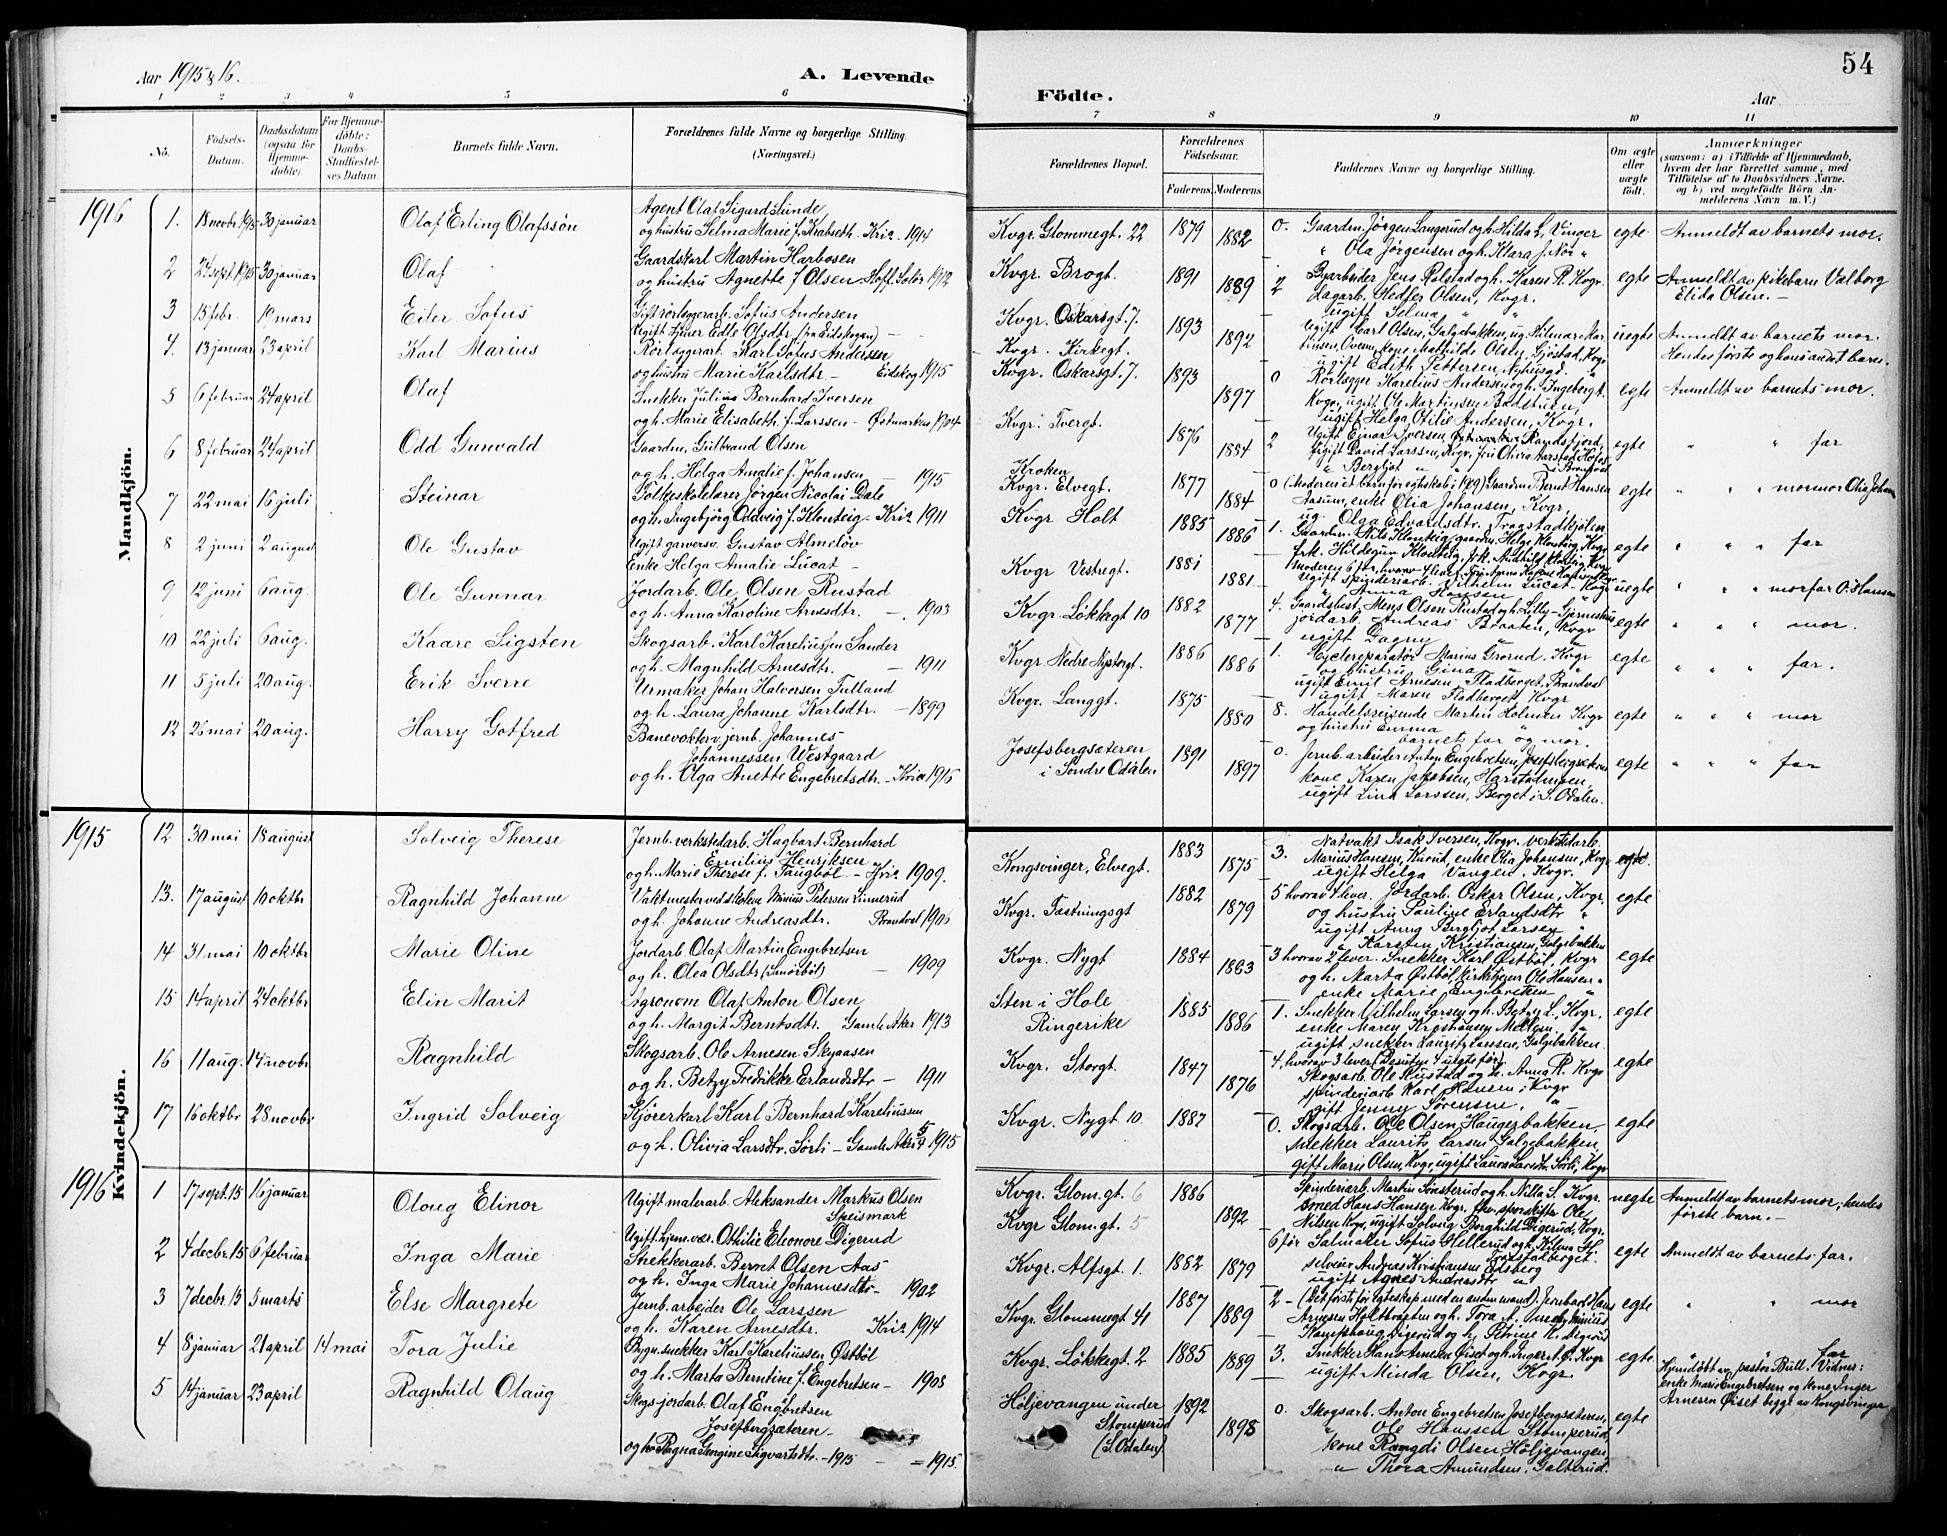 Aar 1915 & 16.
A. Levende
Födte.
Aar
54
1 2 3 4 5 6 7 8 9 10 11
No.
Födsels-Datum.
Daabsdatum (ogsaa for Hjemme-döbte).
For Hjemme-döbte: Daabs-Stadfæstel-ses Datum.
Barnets fulde Navn.
Forældrenes fulde Navne og borgerlige Stilling. (Næringsvei.)
Forældrenes Bopæl.
Forældrenes Födselsaar.
Faderens. Moderens.
Faddernes Navne og borgerlige Stilling.
Om ægte eller uægte födt.
Anmærkninger
(saasom: a) i Tilfælde af Hjemmedaab, hvem der har forrettet samme, med Tilföielse af to Daabsvidners Navne. og b) ved uægtefödte Börn Anmelderens Navn m. V.)
Mandkjön.
1916
1. 18 novbr 1915 30 januar Olaf Erling Olafssön
Agent Olaf Sigurd Lunde
og hustru Selma Marie f. Krabseth - Kria 1914
Kvgr. Glommegt. 22 1879 1882 0. Gaardm. Jörgen Langerud og h. Hilda L, Vinger
" Ola Jörgensen og h. Klara J. Nor "
egte Anmeldt av barnets mor.
2 24 sept 1915 30 januar Olaf
Gaardskarl Martin Harbosen
og hustru Agnette f Olsen - Hoff Solör 1912
Kvgr. Brogt. 1891 1889 2 Byarbeider Jens Rolstad og h. Karen R. Kvgr.
Lagarb. Hedter Olsen, Kvgr.
ugift Selma " "
egte Anmeldt av pikebarn Valborg
Elida Olsen. -
3 13 febr. 19 mars Eiler Sofus
Gift rörlæggerarb. Sofus Andersen
Ugift tjener Edle Olsdtr. (fra Eidskogen) -
Kvgr. Oskarsgt. 7.
Kvgr. Kirkegt.
1893 1892
Ugift Carl Olsen, Galgebakken, ug. Hilmar Martinsen, Overn, kone Mathilde Olsen, Gjöstad, Kvgr
ugift Edith Pettersen, Nyhusgt. "
uegte Anmeldt av barnets mor.
Hendes förste og hans andet barn.
4. 13 januar 23 april Karl Marius
Rörlæggerarb. Karl Sofus Andersen
og hustru Marie Karlsdtr - Eidskog 1915
Kvgr. Oskarsgt. 7. 1893 1897 0 Rörlægger Karelius Andersen og h. Ingeborg A.
Kvgr, ugift Ole Martinsen Badstuen,
ugift Helga Otilie Andersen, Kvgr.
egte Anmeldt av barnets mor.
5 6 februar 24 april Olaf
Snekker Julius Bernhard Iversen
og h. Marie Elisabeth f. Larssen - Östmarken 1904
Kvgr. Tvergt. 1876 1884 2 Ugift Einar Iversen, Randsfjord,
Ugift David Larssen, Kvgr,
" Bergljot " "
egte " " far
6 8 februar 24 april Odd Gunvald
Gaardm. Gulbrand Olsen
og h. Helga Amalie f. Johansen - 1915
Kroken
Kvgr. Elvegt. 1877 1884 0 (Moderen et barn för egteskab i 1909) Gaardm Bernt Hansen
Aasum, enke Olia Johansen, Kvgr,
ug. Olga Edvardsdtr.
egte " " mormor Olia Johans
7 22 mai 16 juli Steinar
Folkeskolelærer Jörgen Nicolai Dale
og h. Ingebjörg Oddveig f. Klonteig - Kria 1911
Kvgr Holt 1885 1886 1. Gaardm. Nils Klonteig, gaardm. Helge Klonteig, Kvgr
frk. Hildegun Klonteig, frk. Klonteig, Kvgr.
egte " " far
8 2 juni 2 august Ole Gustav
Ugift garversv. Gustav Almelöv
Enke Helga Amalie Lucat -
Kvgr Vestregt. 1881 1881
Moderen 6 för, hvorav 4 lever.
Ugift spinderiarb. Vilhelm Lucat - Kvgr
" Anna Hansen "
uegte " " morfar O. Hansen
9 12 juni 6 aug. Ole Gunnar
Jordarb. Ole Olsen Rustad
og h. Anna Karoline Arnesdtr. - 1903
Kvgr. Lökkegt 10 1882 1877 4. Gaardsbest. Mons Olsen Rustad og h. Lilly - Gjermshus
jordarb. Andreas Braaten, Kvgr
ugift Dagny "
egte " " mor.
10 22 juli 6 aug. Kaare Sigsten
Skogsarb. Karl Kareliussen Sander
og h. Magnhild Arnesdtr. - 1911
Kvgr Nedre Nystorgt. 1886 1886 1. Cyclereparatör Marius Grorud. Kvgr
og hustru Gina "
ugift Emil Arnesen, Fladberget, Brandval
ugift Maren Fladberget Kvgr.
egte " " far.
11 5 juli 20 aug. Erik Sverre
Urmaker Johan Halvorsen Tulland
og h. Laura Johanne Karlsdtr. - 1899
Kvgr. Langgt. 1875 1880 8. Handelsreisende Martin Holmen Kvgr
og hustru Emma "
barnets far og mor.
egte " " mor
12 26 mai 20 aug. Harry Gotfred
Banevokter v jernb. Johannes
Johannessen Westgaard
og h. Olga Anette Engebretsdtr - Kria 1916
Josefsbergsæteren
i Söndre Odalen 1891 1897 0. Jernb.arbeider Anton Engebretsen, Josefsbergsæteren
kone Karen Jakobsen, Harstadengen,
ugift Lina Larssen, Berget i S. Odalen.
egte " " far
Kvindekjön.
1915
12 30 mai 18 august Solveig Therese
Jernb.verkstedarb. Hagbart Bernhard
Emilius Henriksen
og h. Marie Therese f. Taugböl - Kria 1909.
Kongsvinger, Elvegt. 1883 1875 3. Natvakt Isak Iversen, Kvgr. verkstedarb.
Marius Hansen, Kurud, enke Olia Johansen, Kvgr
ugift Helga Vangen, Kvgr.
egte.
13. 17 august 10 oktbr Ragnhild Johanne
Vaktmester ved skolene Minius Pedersen Linnerud
og h. Johanne Andreasdtr. Brandval 1905
Kvgr. Fæstningsgt 1882 1879 5 hvorav 4 lever. Jordarb. Oskar Olsen, Kvgr.
og hustru Pauline Erlandsdtr "
ugift Anna Bergljot Larsen "
" Karsten Kristiansen, Galgebakken
egte
14 31 mai 10 oktbr. Marie Oline
Jordarb. Olaf Martin Engebretsen
og h. Olea Olsdtr (Smörböl) - 1909
Kvgr. Nygt 1884 1883 3 hvorav 2 lever. Snekker Karl Östböl, Kvgr
og h. Marta Östböl, kirketjener Ole Hansen "
enke Marie Engebretsen "
egte
15 14 april 24 oktbr Elin Marit
Agronom Olaf Anton Olsen
og h. Margit Berntsdtr. Gamle Aker 1913
Sten i Hole
Ringerike 1885 1886 1. Snekker Vilhelm Larsen og h. Betzy L. Kvgr.
enke Maren Kristiansen Mellem. "
ugift snekker Lauritz Larssen, Galgebakken.
egte
16 11 aug. 14 novbr Ragnhild
Skogsarb. Ole Arnesen Skyaasen
og h. Betzy Fredrikke Erlandsdtr - 1911
Kvgr. Storgt. 1847 1876 4, hvorav 3 lever (Desuten 4 uegte för).
Skogsarb. Ole Rustad og h. Anna R. Kvgr
spinderiarb Karl Hansen, Kvgr
gift Jenny Sörensen. "
egte
17 16 oktbr 28 novbr Ingrid Solveig
Kjörerkarl Karl Bernhard Kareliussen
og h. Olivia Larsdtr. Sörli - Gamle Aker 1915
Kvgr. Nygt 10 1887 0. Skogsarb. Ole Olsen Haugerbakken,
snekker Laurits Larsen Galgebakken,
gift Marie Olsen, Kvgr, ugift Laura Larsdtr. Sörli, Kvgr
egte
1916
1 17 sept. 15 16 januar Olaug Elinor
Ugift malerarb. Aleksander Markus Olsen
Speismark
Ugift hjem.vær. Othilie Eleonore Digerud
Kvgr. Glom.gt. 6
Kvgr Glom.gt. 5
1886 1892
Spinderiarb. Martin Sönsterud og h. Nilla S. Kvgr.
Nilsen Kvgr, ugift Solveig Borghild Digerud, Kvgr.
uegte Anmeldt av barnets mor, hendes
förste barn. -
2 4 decbr. 15 6 februar Inga Marie
Snekkerarb. Bernt Olsen Aas
og h. Inga Marie Johannesdtr - 1902
Kvgr. Alfsgt 1. 1882 1879 6 för Salmaker Sofus Hellerud og h.
selveier Andreas Kristiansen Edsberg
ugift Agnes Andreasdtr "
egte Anmeldt av barnets far.
3 7 decbr. 15 5 marts Else Margrete
Jernb.arbeider Ole Larssen
og h. Karen Arnesdtr. Kria 1914
Kvgr. Glommegt 41 1887 1889 2 - (Det förste för egteskap med en anden mand).
Arnesen Holtbraaten og h. Tora A.
Kamphaug, Digerud og h. Petrine K. Digerud
egte " " mor
4 8 januar 21 april 14 mai Tora Julie
Bygn.snekker Karl Kareliussen Östböl
og h. Marta Berntine f. Engebretsen - 1908
Kvgr. Lökkegt. 2 1885 1889 3. Snekker Hans Arnesen Öiset og h. Inger A. Ö. Kvgr
ugift Minda Olsen, Kvgr.
egte " " far
Hjemdöbt av pastor Bull. Vidner:
enke Marie Engebretsen og kone Inger
Arnesen Öiset begge av Kongsvinger
5 14 januar 23 april Ragnhild Olaug
Skogs-jordarb. Olaf Engebretsen
Josefbergsæteren -
og h. Ragna Gengine Sigvartsdtr. - 1915 - = 1915.
Höljevangen under
Stomperud
(S. Odalen) 1892 1898 0. Skogsarb. Anton Engebretsen Josefbergsæteren,
" Ole Hanssen Stomperud
kone Rangdi Olsen Höljevangen
" Thora Amundsen, Galterud.
egte